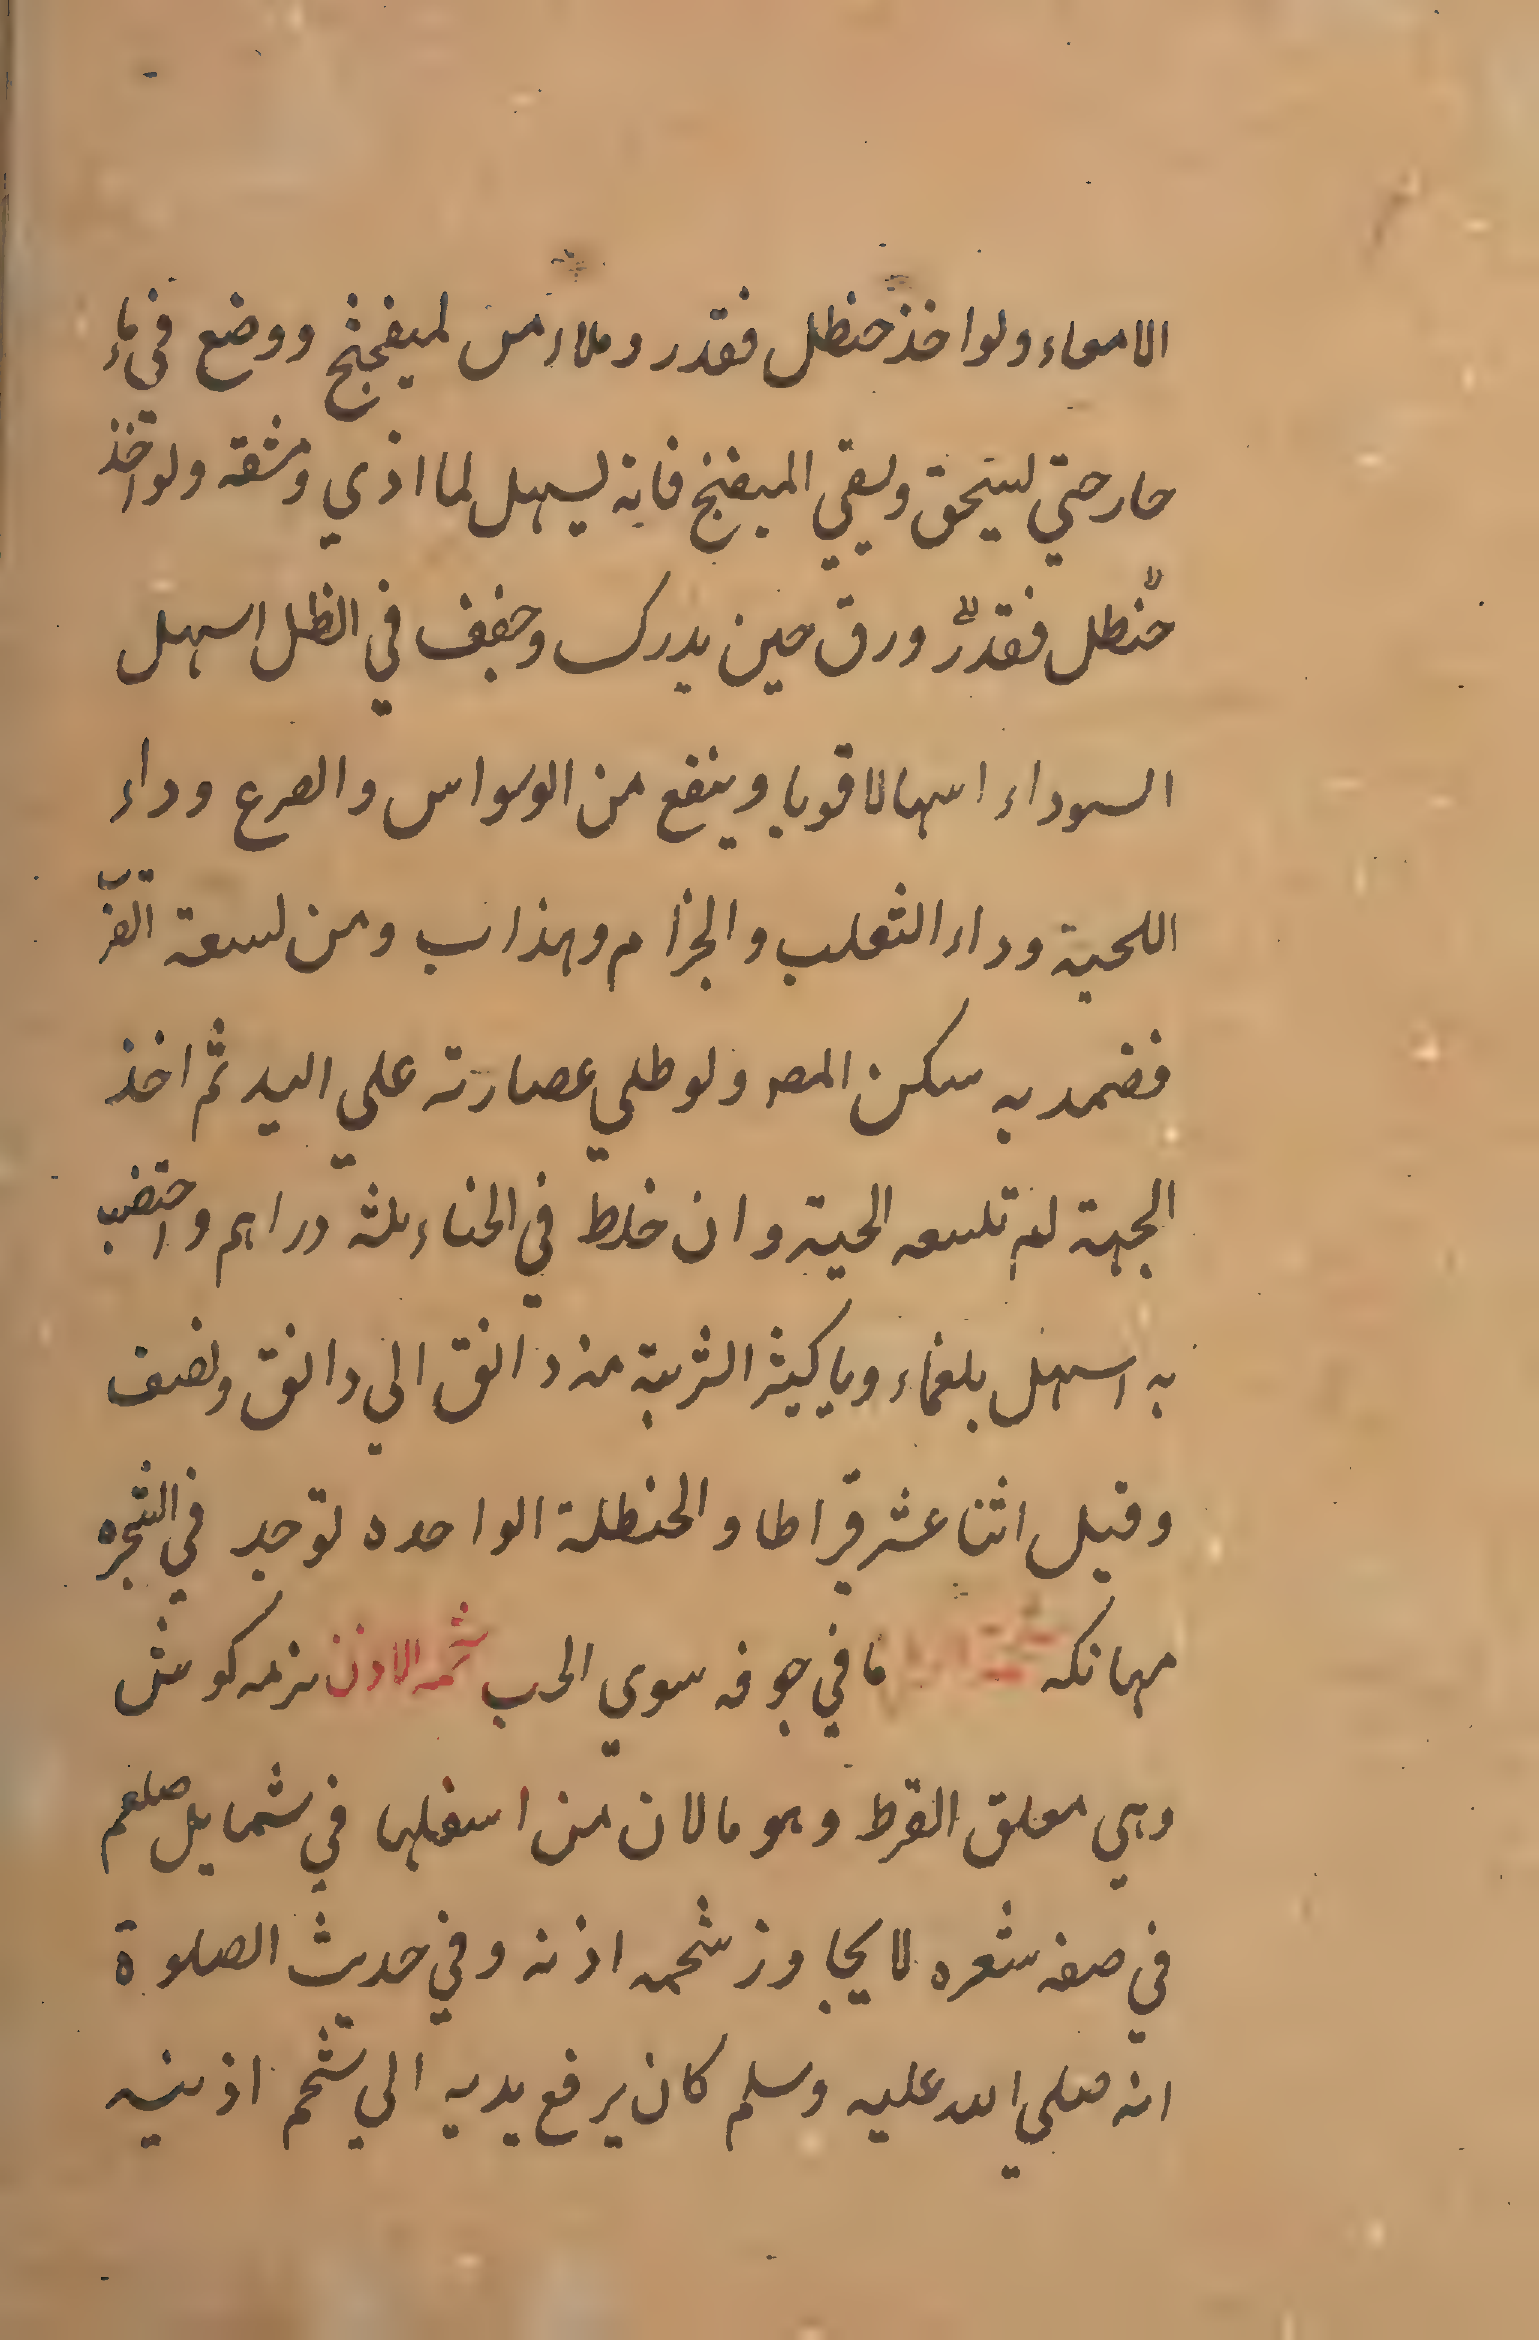 الامعاء ولو اخذ حنظل فقدر وملاء من لميفجنج ووضع في ماء
حار حتي ليسحق وليقي الميفنج فانه ليسهل لما اذي ومشقه ولو اخذ
حنظل فقدر ورق حين يدرك وجفف في الظل اسهل
السوداء اسهالا قويا وينفع من الوسواس والصرع وداء
اللحية وداء الثعلب والجذام وهذاب ومن لسعة
فضمد به سكن المه ولو طلي عصارته علي اليد ثم اخذ
الجهة لم تلسعه الحية وان خلط في الحناء ثلثة دراهم واختضب
به اسهل بلغماء ويا كيثر الشربة من دانق الي دانق ونصف
وقيل اثنا عشر قراطا والحنظلة الواحده توجد في الشجره
مهانكه ما في جوفه سوي الحب شحمه الاذن نرمه كوش
وهي معلق القرط وهو مالان من اسفلها في شمايل صلعم
في صفه شعره لا يجاوز شحمه اذنه وفي حديث الصلوة
انه صلي الله عليه وسلم كان يرفع يديه الي شحم اذنيه